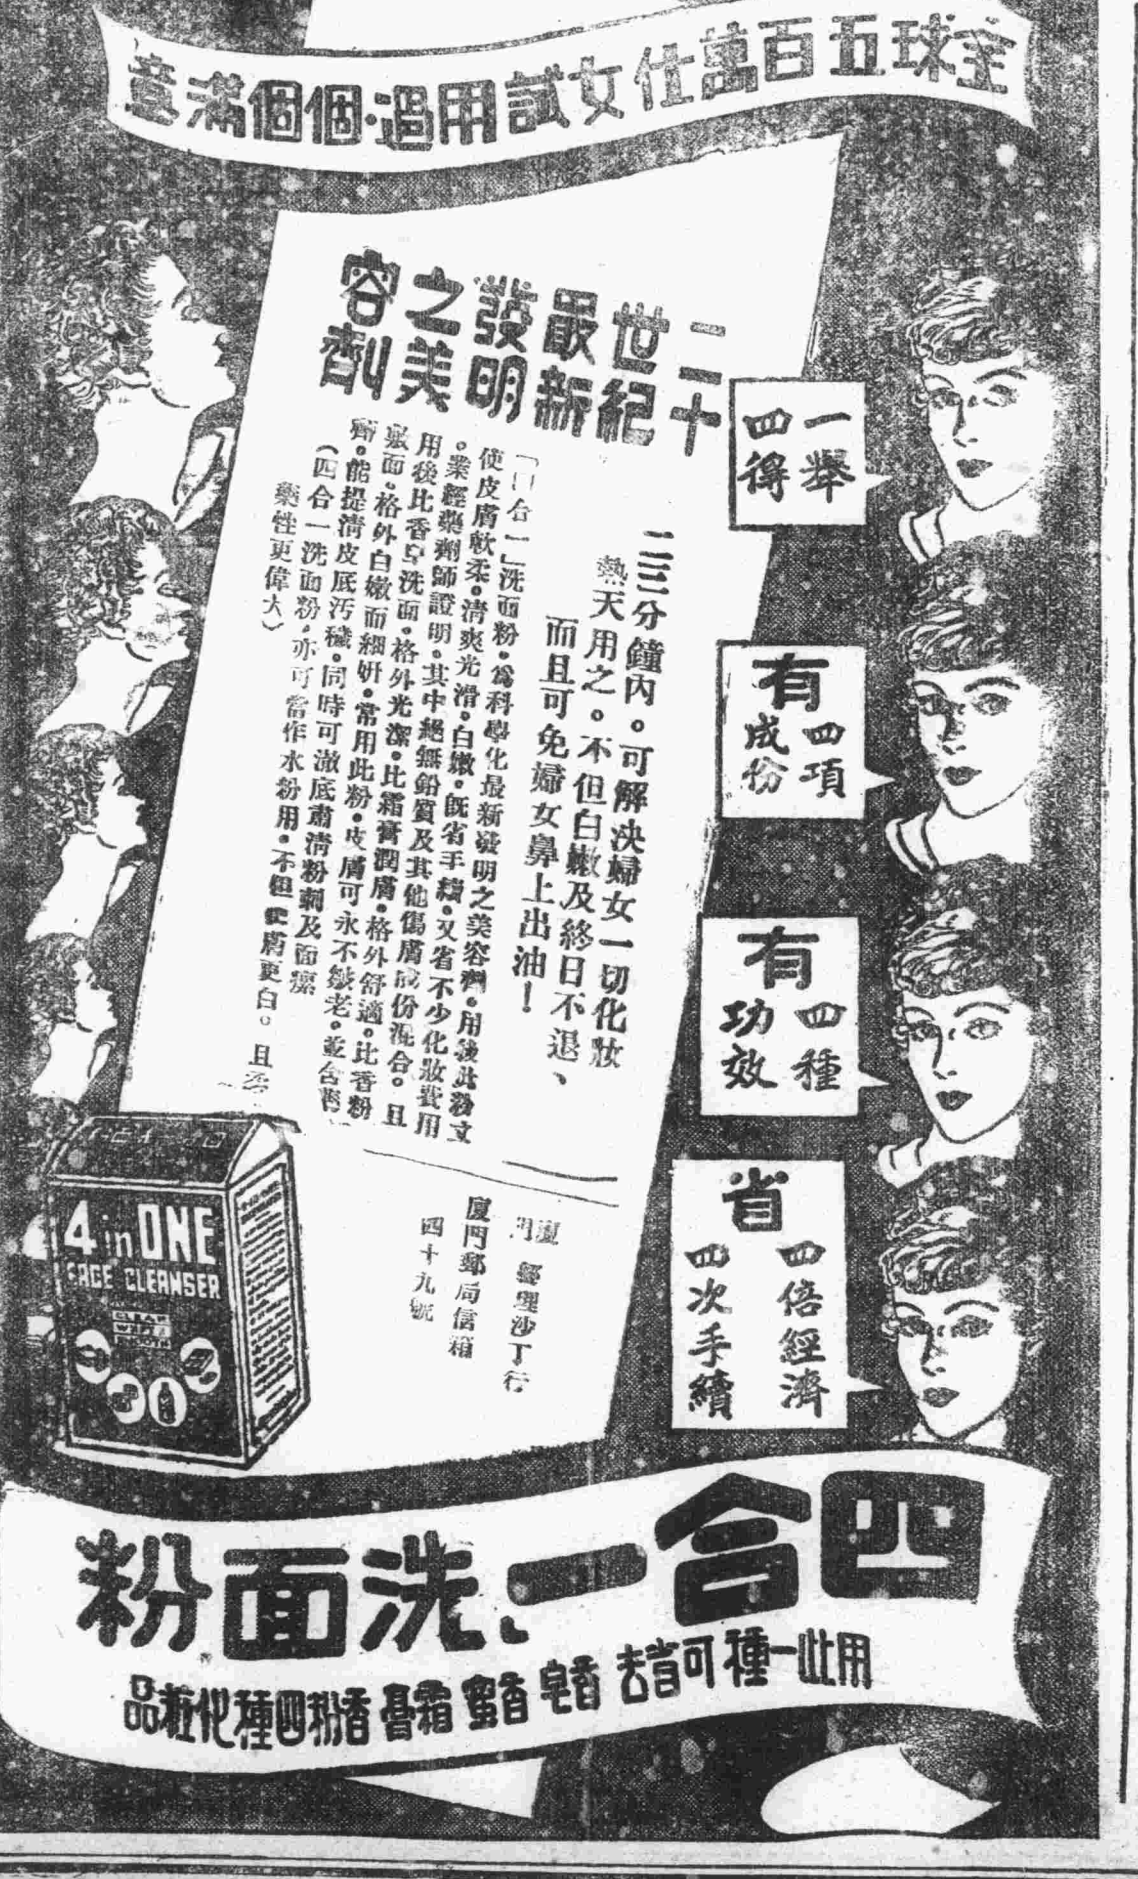 全球五百萬仕女試用過·個個滿意
二十
世紀
最新
發明
之美
容劑
二三分鐘內。可解決婦女一切化妝
熱天用之。不但白嫩及終日不退、
而且可免婦女鼻上出油！
合一」洗面粉。為科學化最新發明之美容劑。用
使皮膚軟柔。清爽光滑。白嫩。既省手續。又省不少化妝費用
。業經藥劑師證明。其中絕無鉛質及其他傷膚成份混合。且
用後比香皂洗面。格外光潔。比霜膏潤膚。格外舒適。比香粉
敷面。格外白嫩而細妍。常用此粉。皮膚可永不皺老。並含
。能提清皮底污穢。同時可澈底肅清粉刺及面瘰
（四合一洗面粉。亦可當作水粉用。不但膚更白。且
藥性更偉大）
廈門
經理沙丁行
廈門郵局信箱
四十九號
一舉
四得
有
四項
成份
有
四種
功效
省
四倍經濟
四次手續
4 in ONE
FACE CLEANSER
四合一洗面粉
用此一種可省去香皂香蜜霜膏香粉四種化粧品